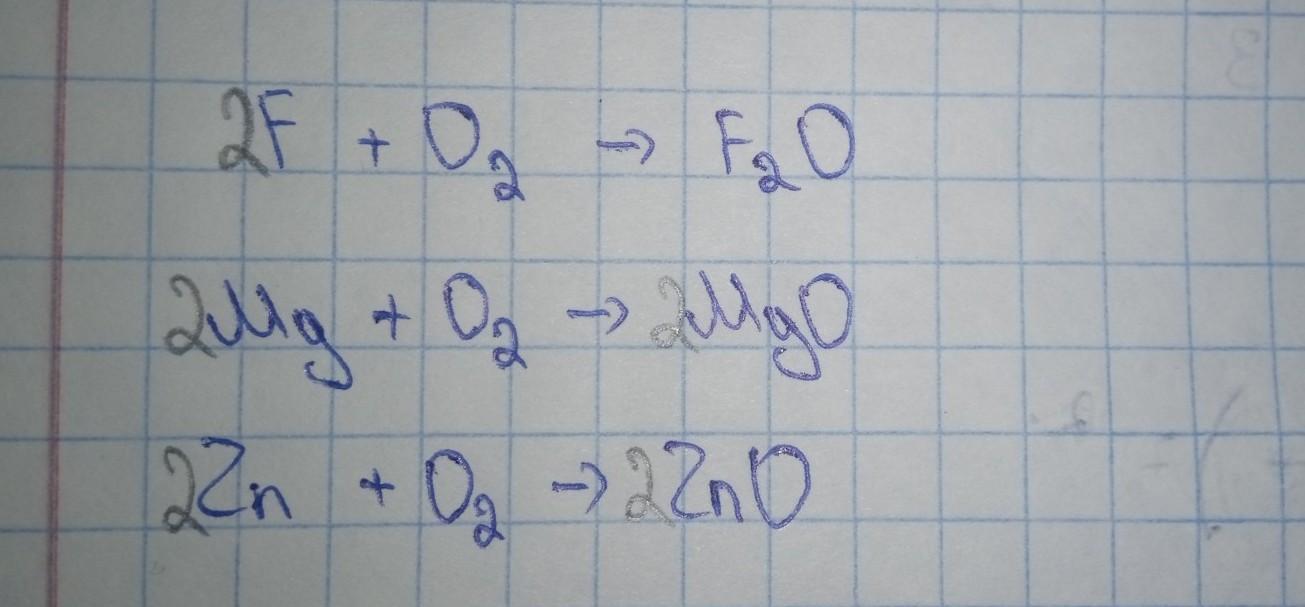 2F + O₂ → F₂O
2Mg + O₂ → 2MgO
2Zn + O₂ → 2ZnO